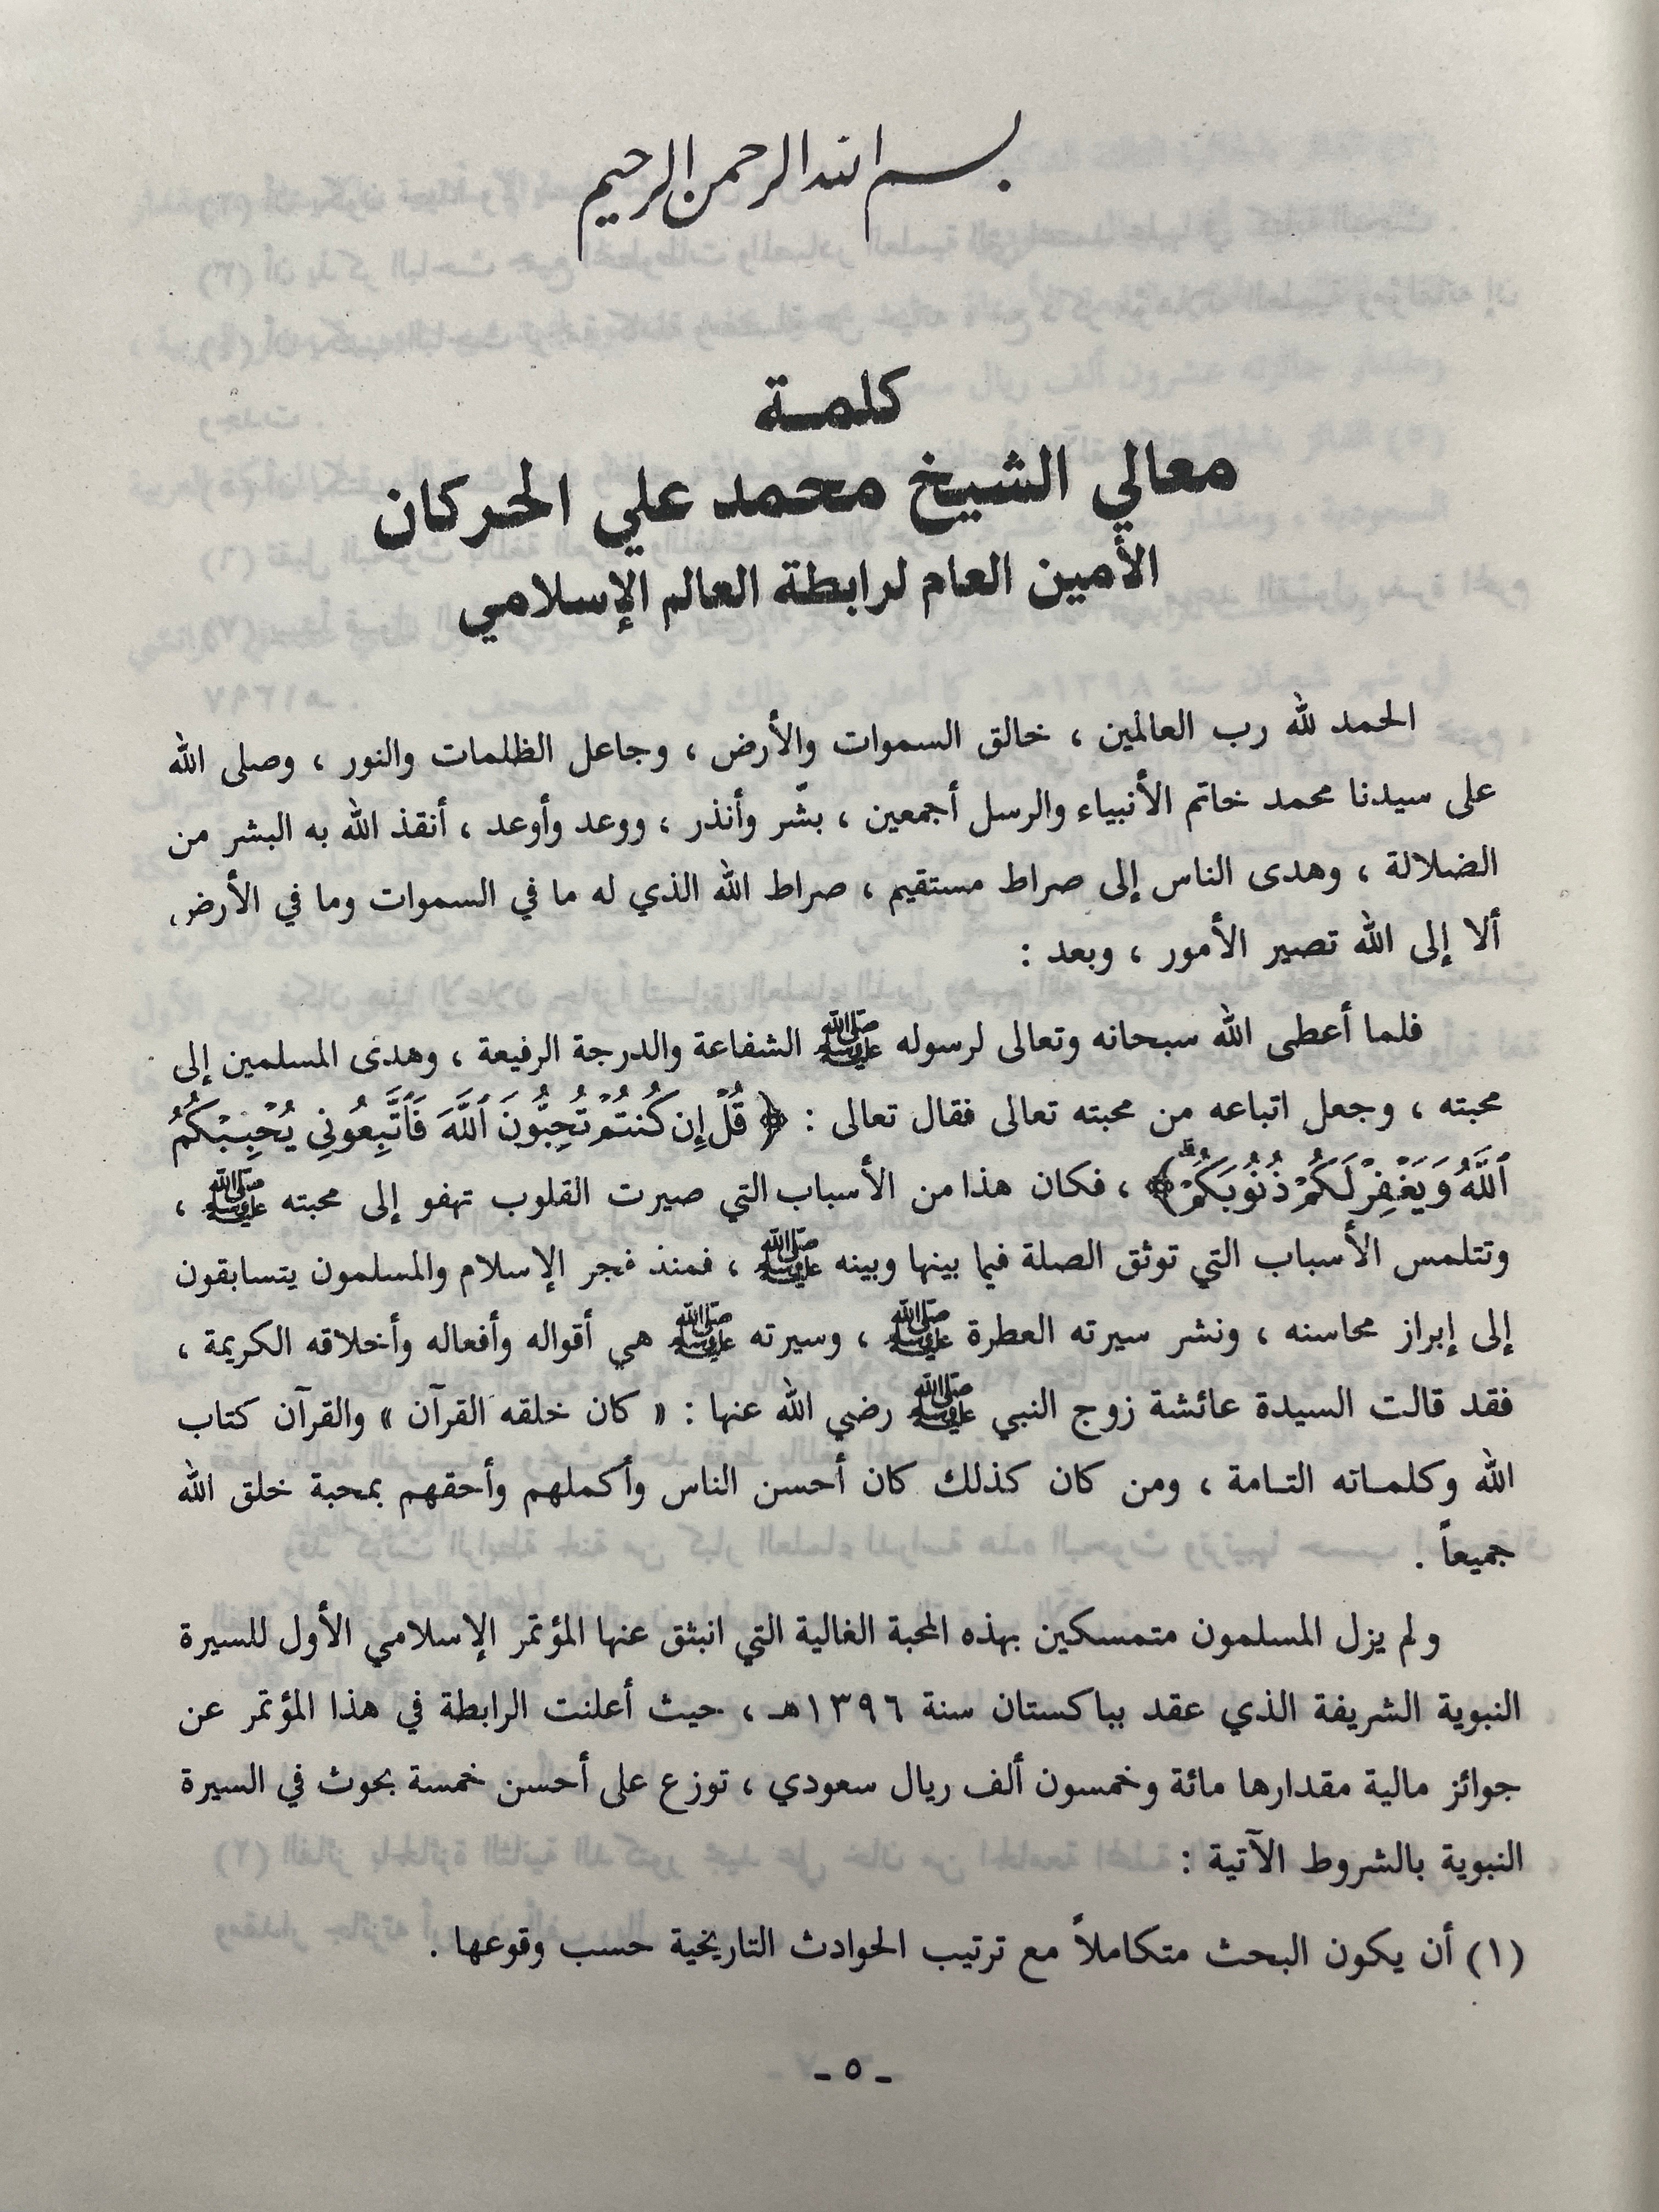 بسم الله الرحمن الرحيم
كلمة
معالي الشيخ محمد علي الحركان
الأمين العام لرابطة العالم الإسلامي
الحمد لله رب العالمين ، خالق السموات والأرض ، وجاعل الظلمات والنور ، وصلى الله
على سيدنا محمد خاتم الأنبياء والرسل أجمعين ، بشّر وأنذر ، ووعد وأوعد ، أنقذ الله به البشر من
الضلالة ، وهدى الناس إلى صراط مستقيم ، صراط الله الذي له ما في السموات وما في الأرض ،
ألا إلى الله تصير الأمور ، وبعد :
فلما أعطى الله سبحانه وتعالى لرسوله ﷺ الشفاعة والدرجة الرفيعة ، وهدى المسلمين إلى
محبته ، وجعل اتباعه من محبته تعالى فقال تعالى : ﴿ قُلْ إِن كُنتُمْ تُحِبُّونَ ٱللَّهَ فَٱتَّبِعُونِي يُحْبِبْكُمُ
ٱللَّهُ وَيَغْفِرْ لَكُمْ ذُنُوبَكُمْ ۗ﴾ ، فكان هذا من الأسباب التي صيرت القلوب تهفو إلى محبته ﷺ ،
وتتلمس الأسباب التي توثق الصلة فيما بينها وبينه ﷺ ، فمنذ فجر الإسلام والمسلمون يتسابقون
إلى إبراز محاسنه ، ونشر سيرته العطرة ﷺ ، وسيرته ﷺ هي أقواله وأفعاله وأخلاقه الكريمة ،
فقد قالت السيدة عائشة زوج النبي ﷺ رضي الله عنها : « كان خلقه القرآن » والقرآن كتاب
الله وكلمـاته التـامة ، ومن كان كذلك كان أحسن الناس وأكملهم وأحقهم بمحبة خلق الله
جميعاً .
ولم يزل المسلمون متمسكين بهذه المحبة الغالية التي انبثق عنها المؤتمر الإسلامي الأول للسيرة
النبوية الشريفة الذي عقد بباكستان سنة ١٣٩٦هـ ، حيث أعلنت الرابطة في هذا المؤتمر عن
جوائز مالية مقدارها مائة وخمسون ألف ريال سعودي ، توزع على أحسن خمسة بحوث في السيرة
النبوية بالشروط الآتية :
(١) أن يكون البحث متكاملاً مع ترتيب الحوادث التاريخية حسب وقوعها .
ـ ٥ ـ